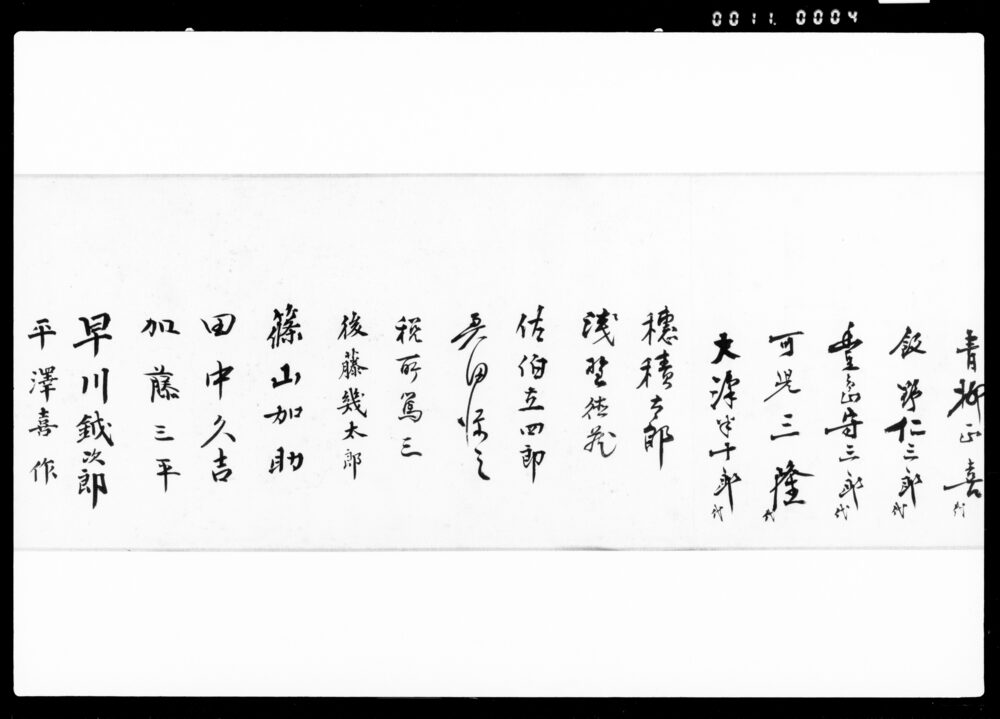 0011.0004
青柳正喜 代
飯野仁三郎 代
豊島寺三郎 代
可児三隆 代
大津半十郎 代
穂積太郎
浅野徳蔵
佐伯立四郎
税所篤三
後藤幾太郎
篠山加助
田中久吉
加藤三平
早川鉞次郎
平澤喜作